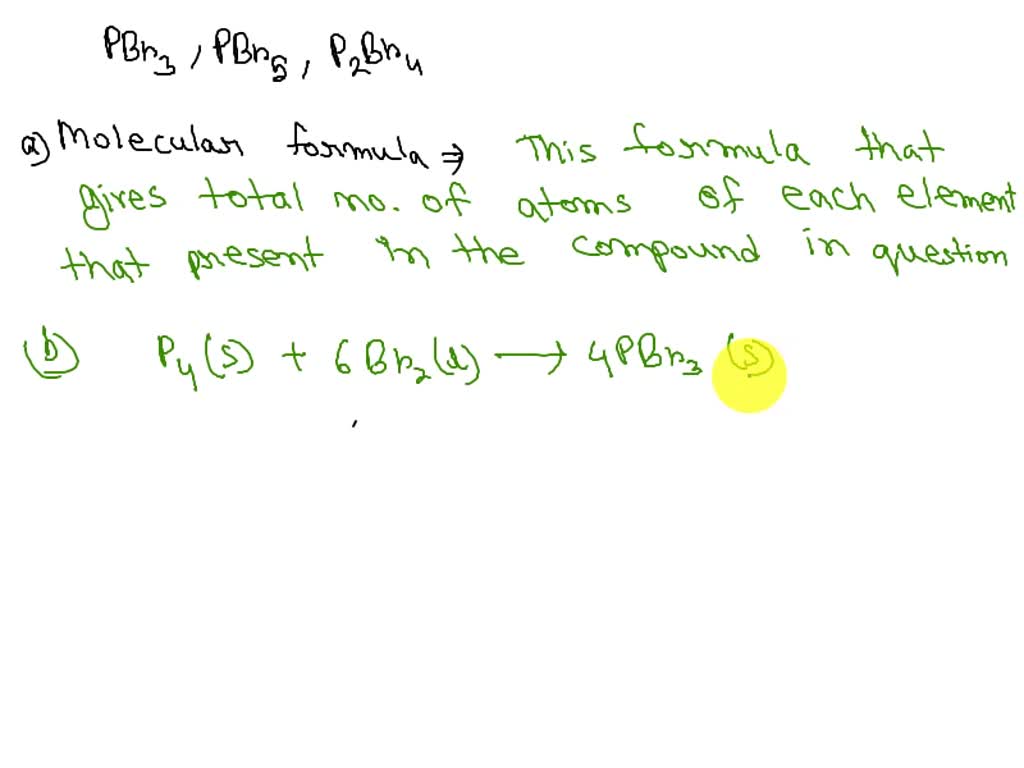 PBr3, PBr5, P2Br4
a) Molecular formula ⇒ This formula that
gives total no. of atoms of each element
that present in the compound in question
(b) P4(s) + 6Br2(l) → 4PBr3 (s)